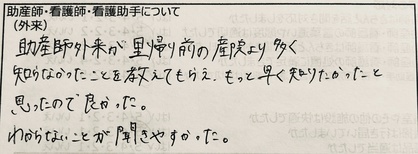 助産師・看護師・看護助手について
(外来)
助産師外来が里帰り前の産院より多く
知らなかったことを教えてもらえ、もっと早く知りたかったと
思ったので良かった。
わからないことが聞きやすかった。